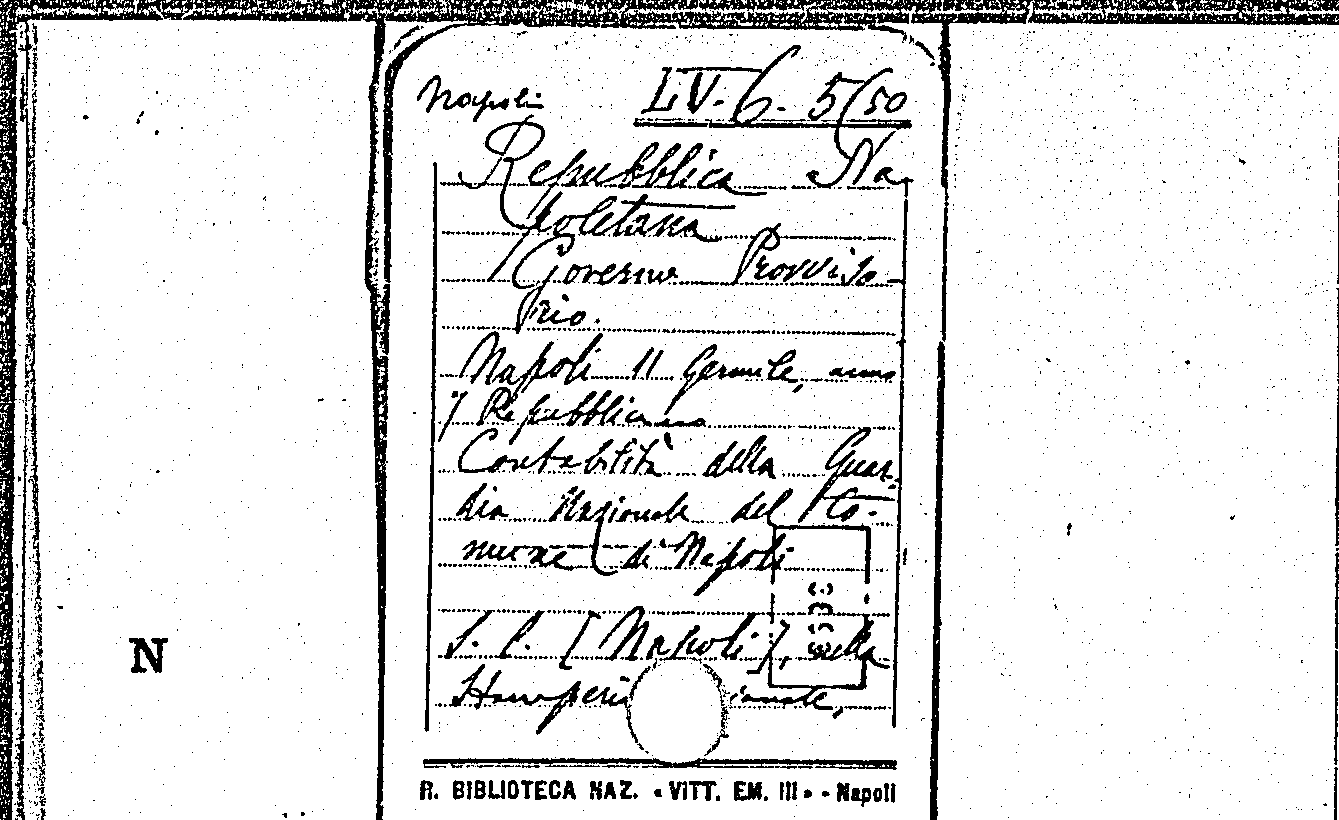 Napoli LV. 6. 5(50
Repubblica Na-
poletana
Governo Provviso-
rio.
Napoli 11 Germile, anno
7 Repubblicano
Contabilità della Guar-
dia Nazionale del Co-
mune di Napoli
S. l. [Napoli], nella
Stamperi ionale,
N
R. BIBLIOTECA NAZ. «VITT. EM. III» - Napoli